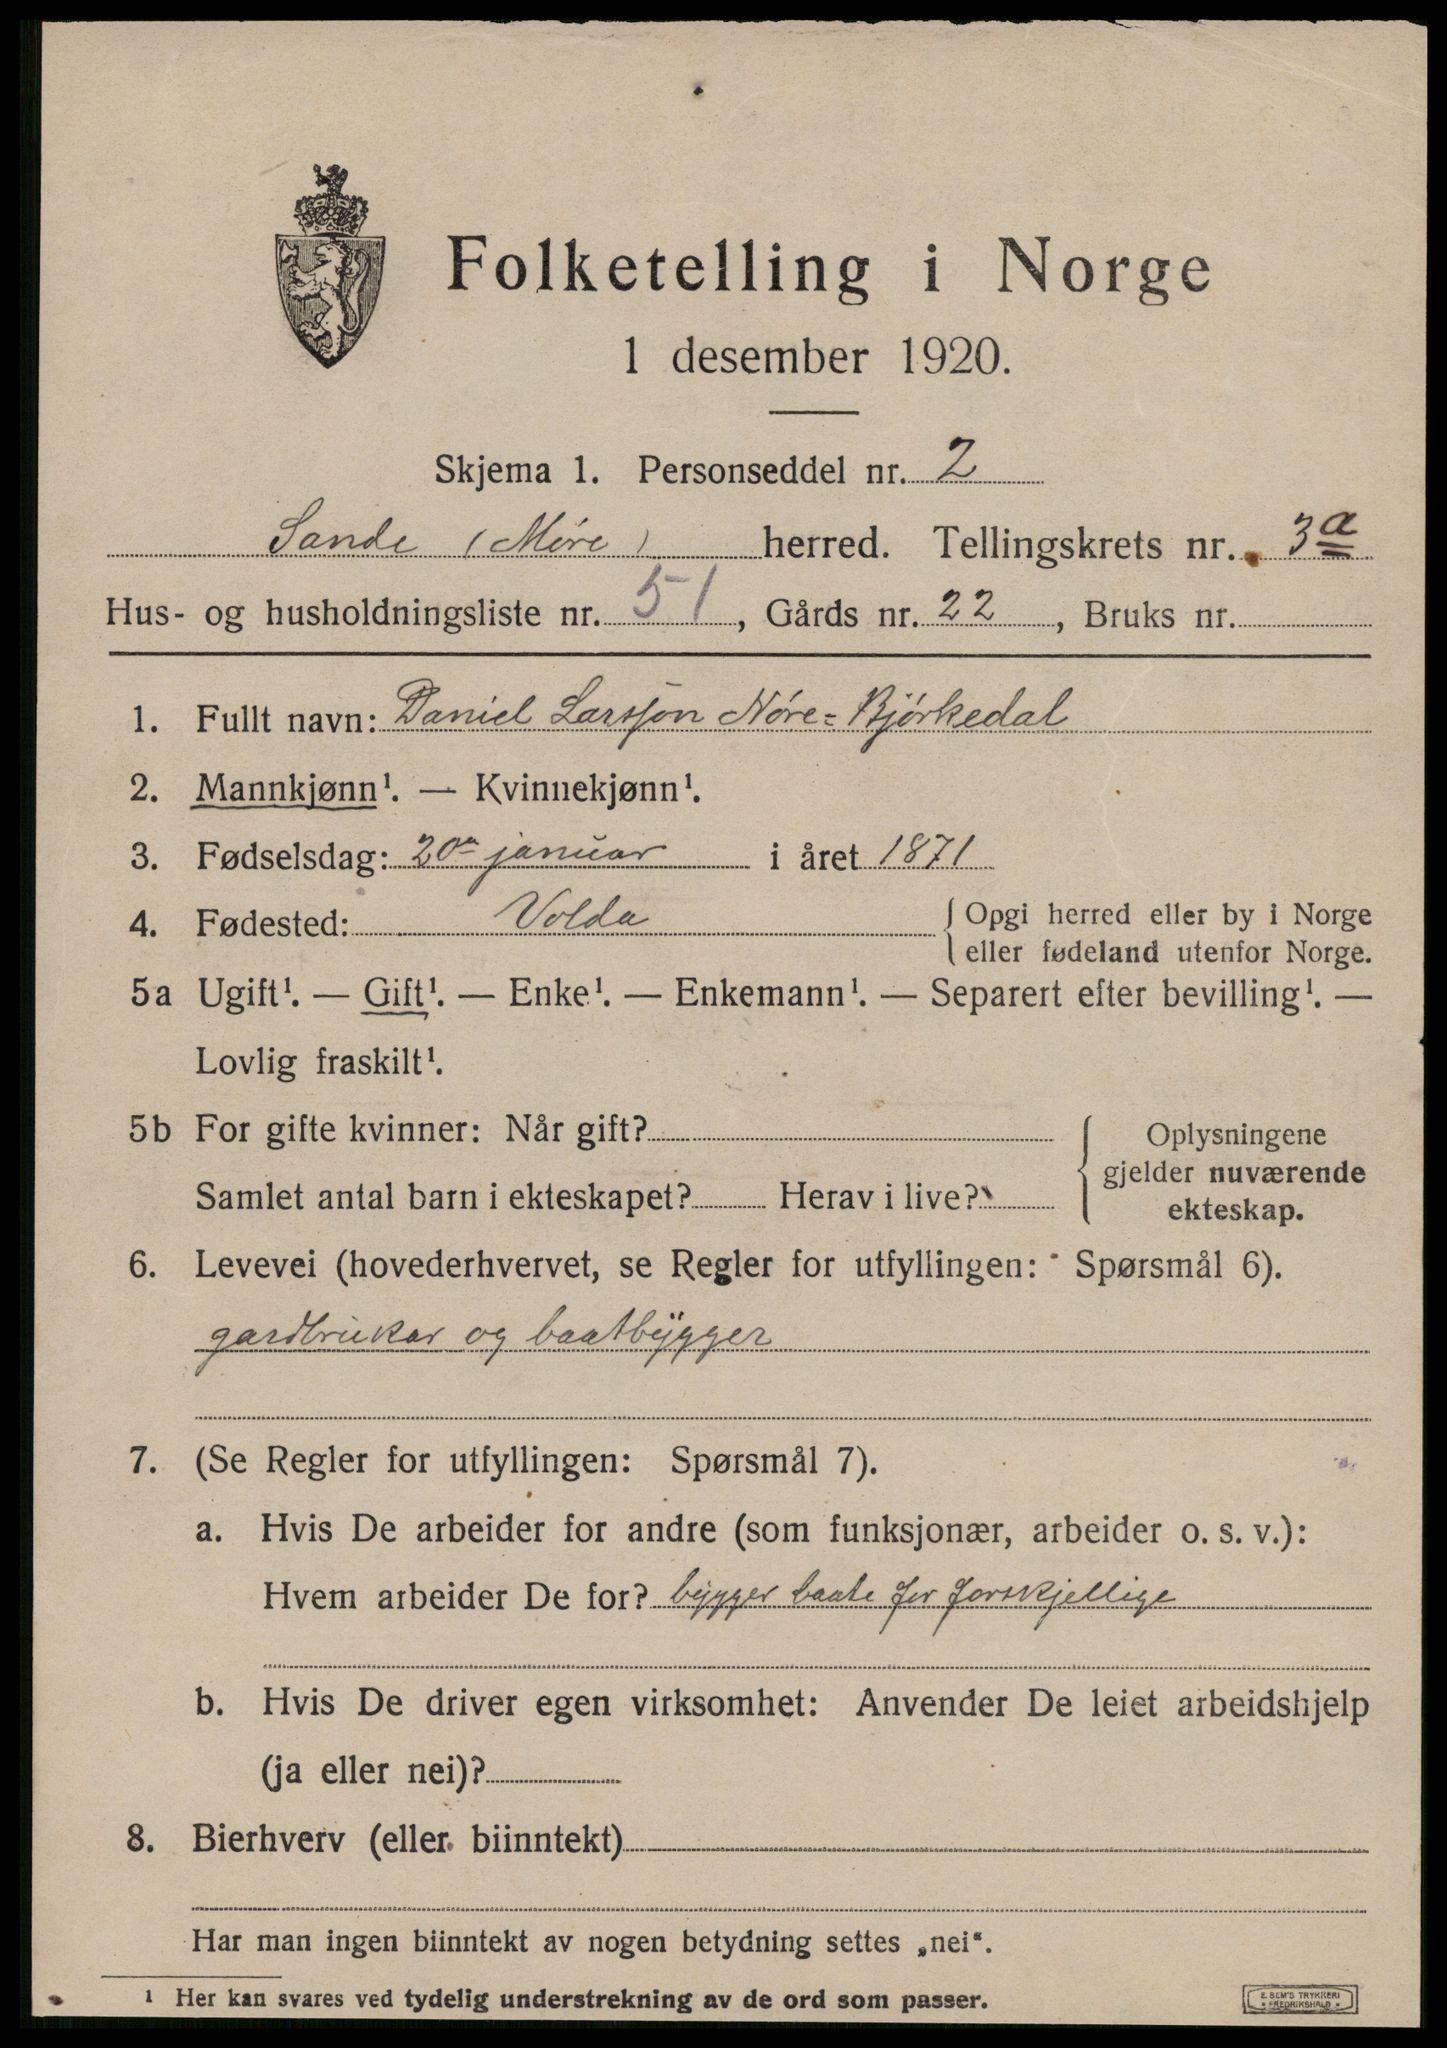 Folketelling i Norge
1 desember 1920.
Skjema 1. Personseddel nr. 2
Sande (Møre) herred. Tellingskrets nr. 3a
Hus- og husholdningsliste nr. 51, Gårds nr. 22, Bruks nr.
1. Fullt navn: Daniel Larsson Nóre= Bjórkedal
2. Mannkjønn¹. — Kvinnekjønn¹.
3. Fødselsdag: 20de januar i året 1871
4. Fødested: Volda { Opgi herred eller by i Norge
eller fødeland utenfor Norge.
5a Ugift¹. — Gift¹. — Enke¹. — Enkemann¹. — Separert efter bevilling¹. —
Lovlig fraskilt¹.
5b For gifte kvinner: Når gift?
Samlet antal barn i ekteskapet? Herav i live?
Oplysningene
gjelder nuværende
ekteskap.
6. Levevei (hovederhvervet, se Regler for utfyllingen: Spørsmål 6).
gardbrukar og baatbygger
7. (Se Regler for utfyllingen: Spørsmål 7).
a. Hvis De arbeider for andre (som funksjonær, arbeider o. s. v.):
Hvem arbeider De for? bygger baate for forskjellige
b. Hvis De driver egen virksomhet: Anvender De leiet arbeidshjelp
(ja eller nei)?
8. Bierhverv (eller biinntekt)
Har man ingen biinntekt av nogen betydning settes „nei“.
¹ Her kan svares ved tydelig understrekning av de ord som passer.
E. SEM'S TRYKKERI
FREDRIKSHALD